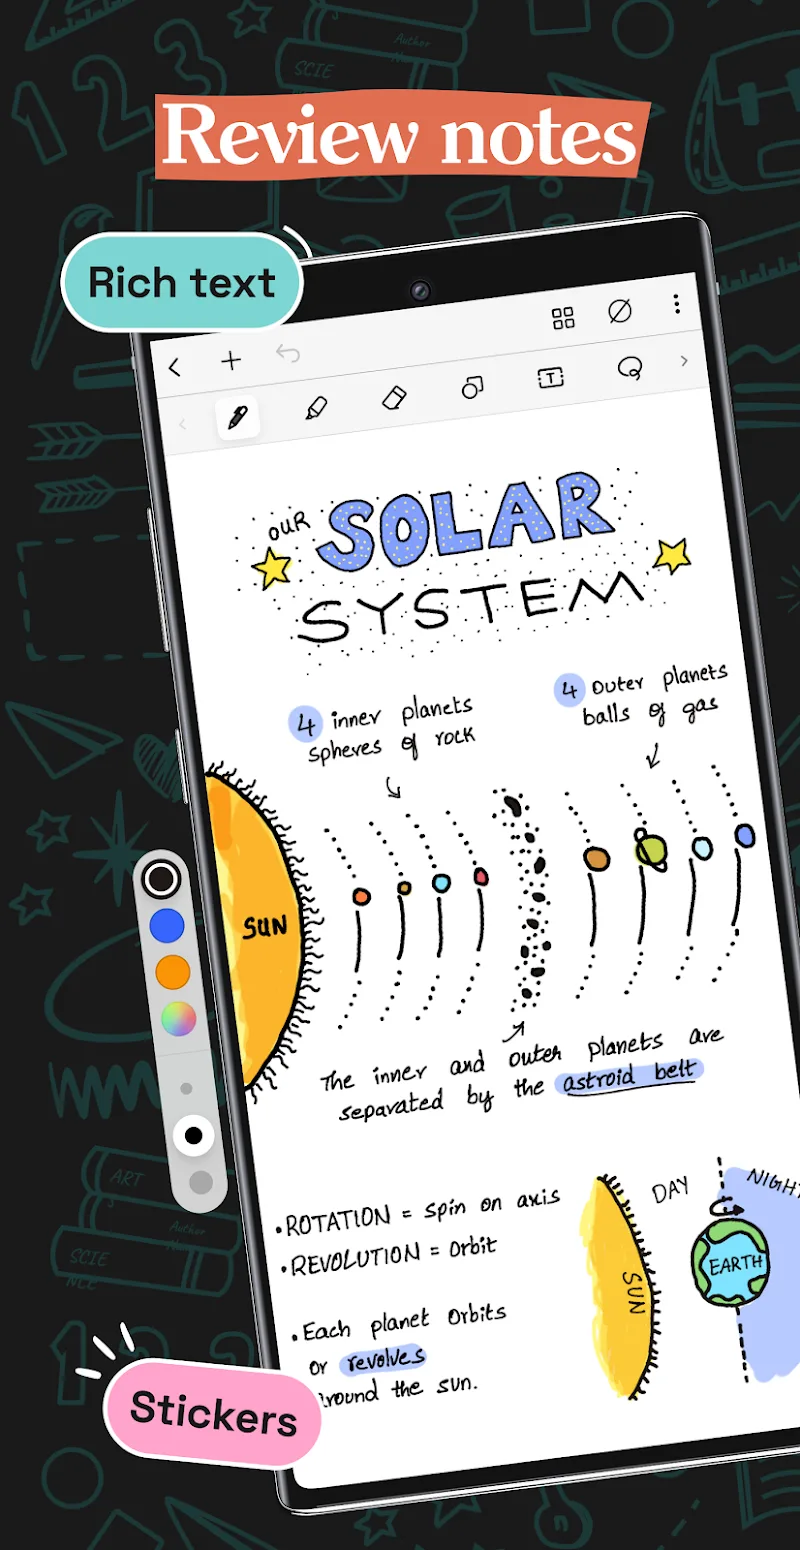 Author
SCIE
Review notes
Rich text
T
OUR
SOLAR
SYSTEM
4 inner planets
spheres of rock
4 Outer planets
balls of gas
SUN
The inner and outer planets are
separated by the astroid belt
ART
Author
SCIE
NCE
•ROTATION = Spin on axis
•REVOLUTION = Orbit
•Each planet Orbits
or revolves
around the sun.
DAY
NIGHT
SUN
EARTH
Stickers
1 2 3
1 2 3